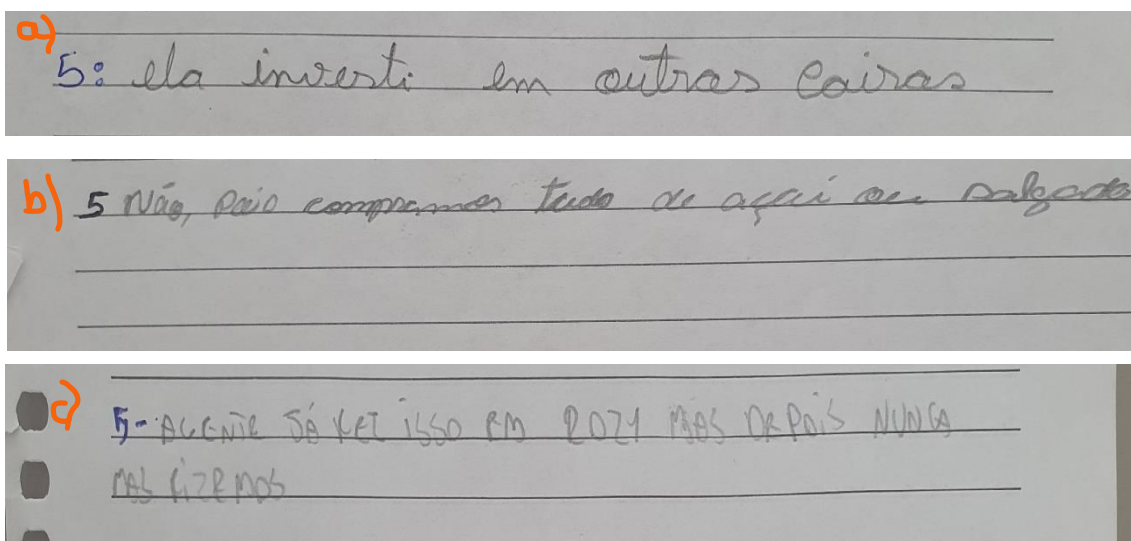 a)
5: ela investi em outras coisas
b)
5 Não, pois compramos tudo de açaí ou salgado
c)
5- AGENTE JÁ FEZ ISSO EM 2021 MAS DEPOIS NUNCA
MAS FIZEMOS